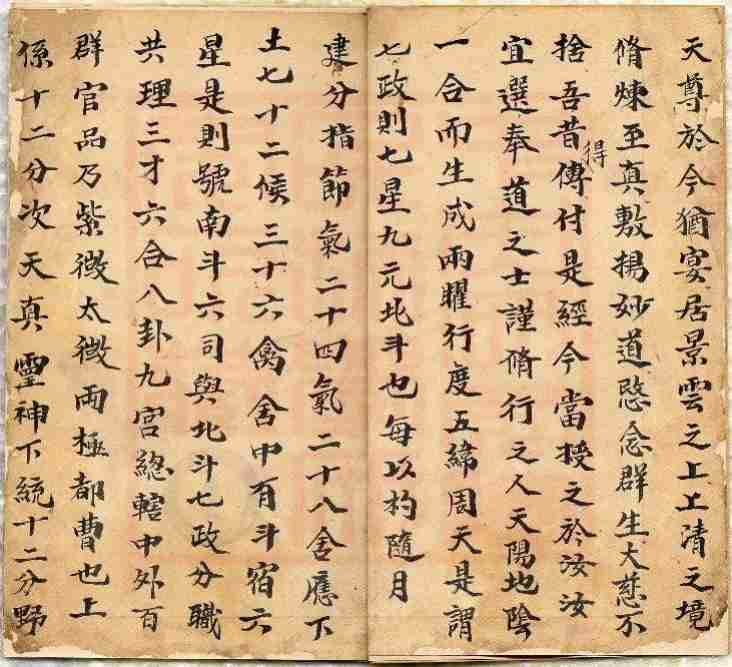 天尊於今猶宴居景雲之上上清之境
脩煉至真敷揚妙道愍念群生大慈不
捨吾昔得傳付是經今當授之於汝汝
宜選奉道之士謹脩行之人天陽地隂
一合而生成兩曜行度五緯周天是謂
七政則七星九元北斗也每以杓隨月
建分指節氣二十四氣二十八舍應下
土七十二候三十六禽舍中有斗宿六
星是則號南斗六司與北斗七政分職
共理三才六合八卦九宮總轄中外百
群官品乃紫微太微兩極都曹也上
係十二分次天真靈神下統十二分野